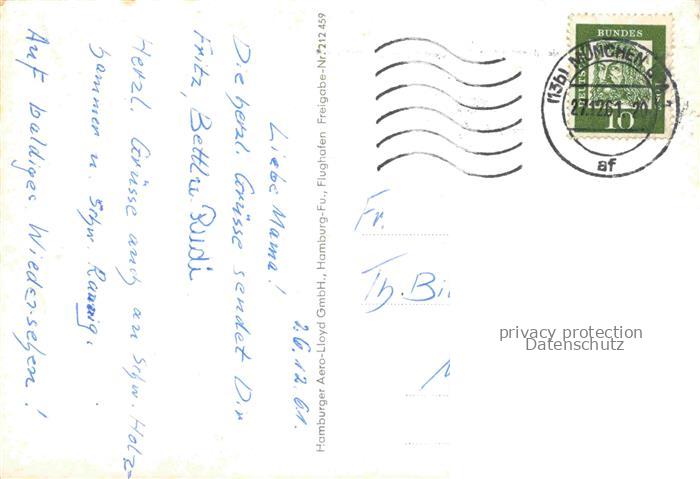 2.6.12.61.
Liebe Mama!
Die herzl. Grüsse sendet Dir
Fritz, Rudi
Herzl. Grüsse auch an Schw. Holz=
hammer u. Schw.
Auf baldiges Wiedersehen!
Hamburger Aero-Lloyd GmbH., Hamburg-Fu., Flughafen Freigabe-Nr. 212 459
(13b) MÜNCHEN
27.12.61
af
BUNDES
10
Fr.
Th. Bi
privacy protection
Datenschutz